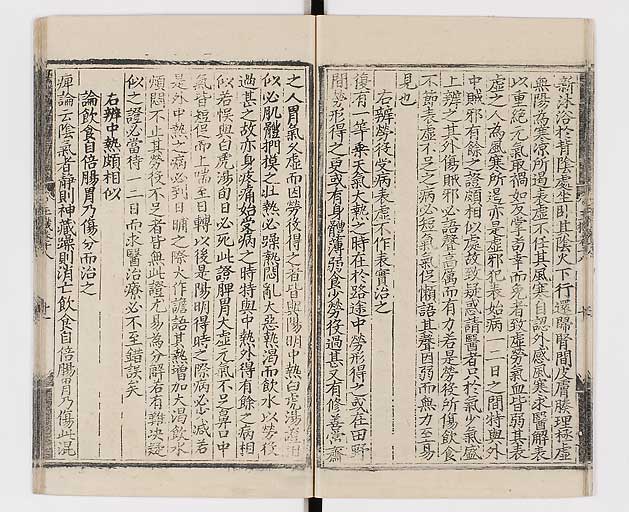 新沐浴於背陰處坐臥其陰火下行還歸腎間皮膚腠理極虛
無陽為寒凉所遏表虛不任其風寒自認外感風寒求醫解表
以重絕元氣取禍如反掌苟幸而免者致虛勞氣血皆弱其表
虛之人為風寒所遏亦是虛邪犯表始病一二日之間特與外
中賊邪有餘之證頗相似處故致疑惑請醫者只於氣少氣盛
上辨之其外傷賊邪必語聲高厲而有力若是勞役所傷飲食
不節表虛不足之病必短氣氣促懶語其聲困弱而無力至易
見也
右辨勞役受病表虛不作表實治之
復有一等乗天氣大熱之時在於路途中勞形得之或在田野
間勞形得之更或有身體薄弱食少勞役過甚又有修善常齋
之人胃氣久虛而因勞役得之者皆與陽明中熱白虎湯證相
似必肌體捫摸之壯熱必躁熱悶亂大惡熱渴而飲水以勞役
過甚之故亦身疼痛始受病之時特與中熱外得有餘之病相
似若悞與白虎湯旬日必死此證脾胃大虛元氣不足鼻口中
氣皆短促而上喘至日轉以後是陽明得時之際病必少減若
是外中熱之病必到日晡之際大作譫語其熱增加大渴飲水
煩悶不止其勞役不足者皆無此證尤易為分解若有難決疑
似之證必當待一二日而求醫治療必不至錯誤矣
右辨中熱頗相似
論飲食自倍腸胃乃傷分而治之
痺論云陰氣者靜則神藏躁則消亡飲食自倍腸胃乃傷此混